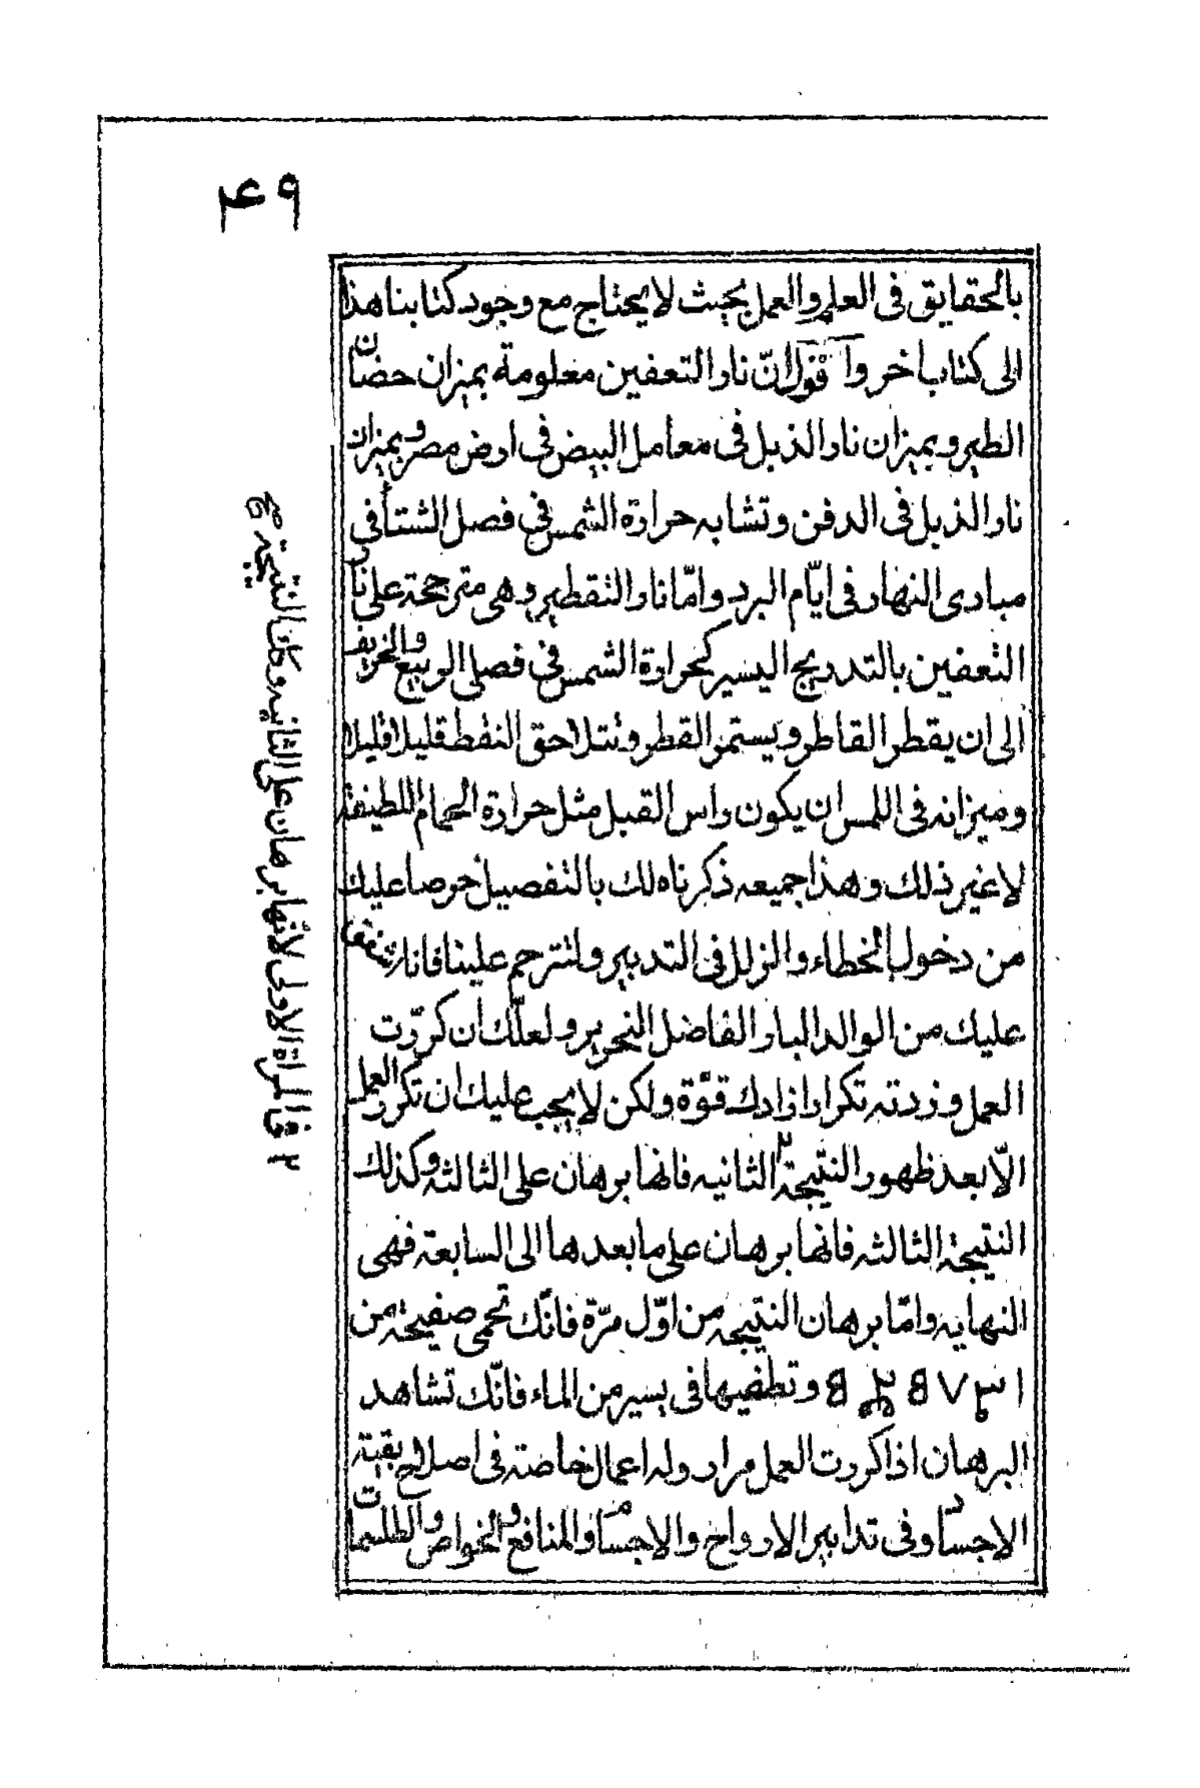 ۴۹
بالحقايق فى العلم والعمل بحيث لا يحتاج مع وجود كتابنا هذا
الى كتاب اخر واقول انّ نار التعفين معلومة بميزان حضان
الطير وبميزان نار الذبل فى معامل البيض فى ارض مصر وبميزان
نار الذبل فى الدفن وتشابه حرارة الشمس فى فصل الشتأ فى
مبادى النهار فى ايّام البرد وامّا نار التقطير وهى مترجحة على نار
التعفين بالتدريج اليسير كحرارة الشمس فى فصلى الربيع والخريف
الى ان يقطر القاطر ويستمر القطر وتتلاحق النقط قليلا قليلا
وميزانه فى اللمس ان يكون راس القبل مثل حرارة الحمام اللطيفة
لا غير ذلك وهذا جميعه ذكرناه لك بالتفصيل حرصا عليك
من دخول الخطاء والزلل فى التدبير ولتترحم علينا فانا
عليك من الوالد البار الفاضل النحرير ولعلّك ان كررّت
العمل وزدته تكرارا زادك قوّة ولكن لا يجب عليك ان تكرر العمل
الّا بعد ظهور النتيجة ٢ الثانيه فانها برهان على الثالثه وكذلك
النتيجة الثالثه فانها برهان على ما بعدها الى السابعة فهى
النهايه وامّا برهان النتيجه من اوّل مرّة فانّك تحمى صفيحة من
وتطفيها فى يسير من الماء فانّك تشاهد
البرهان اذا كررت العمل مرار وله اعمال خاصّة فى اصلاح بقية
الاجساد وفى تدابير الارواح والاجسام والمنافع والخواص والطلسمات
٢ فى المراة الاولى لأنها برهان على الثانيه وكك النتيجة صح